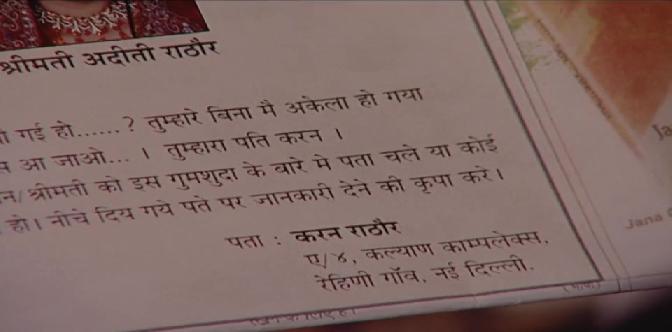 श्रीमती अदीती राठौर
गई हो......? तुम्हारे बिना मै अकेला हो गया
आ जाओ... । तुम्हारा पति करन ।
श्रीमती को इस गुमशुदा के बारे मे पता चले या कोई
हो। नीचे दिय गये पते पर जानकारी देने की कृपा करे।
पता : करन राठौर
ए/४, कल्याण काम्पलेक्स,
रेहिणी गॉव, नई दिल्ली.
Jana